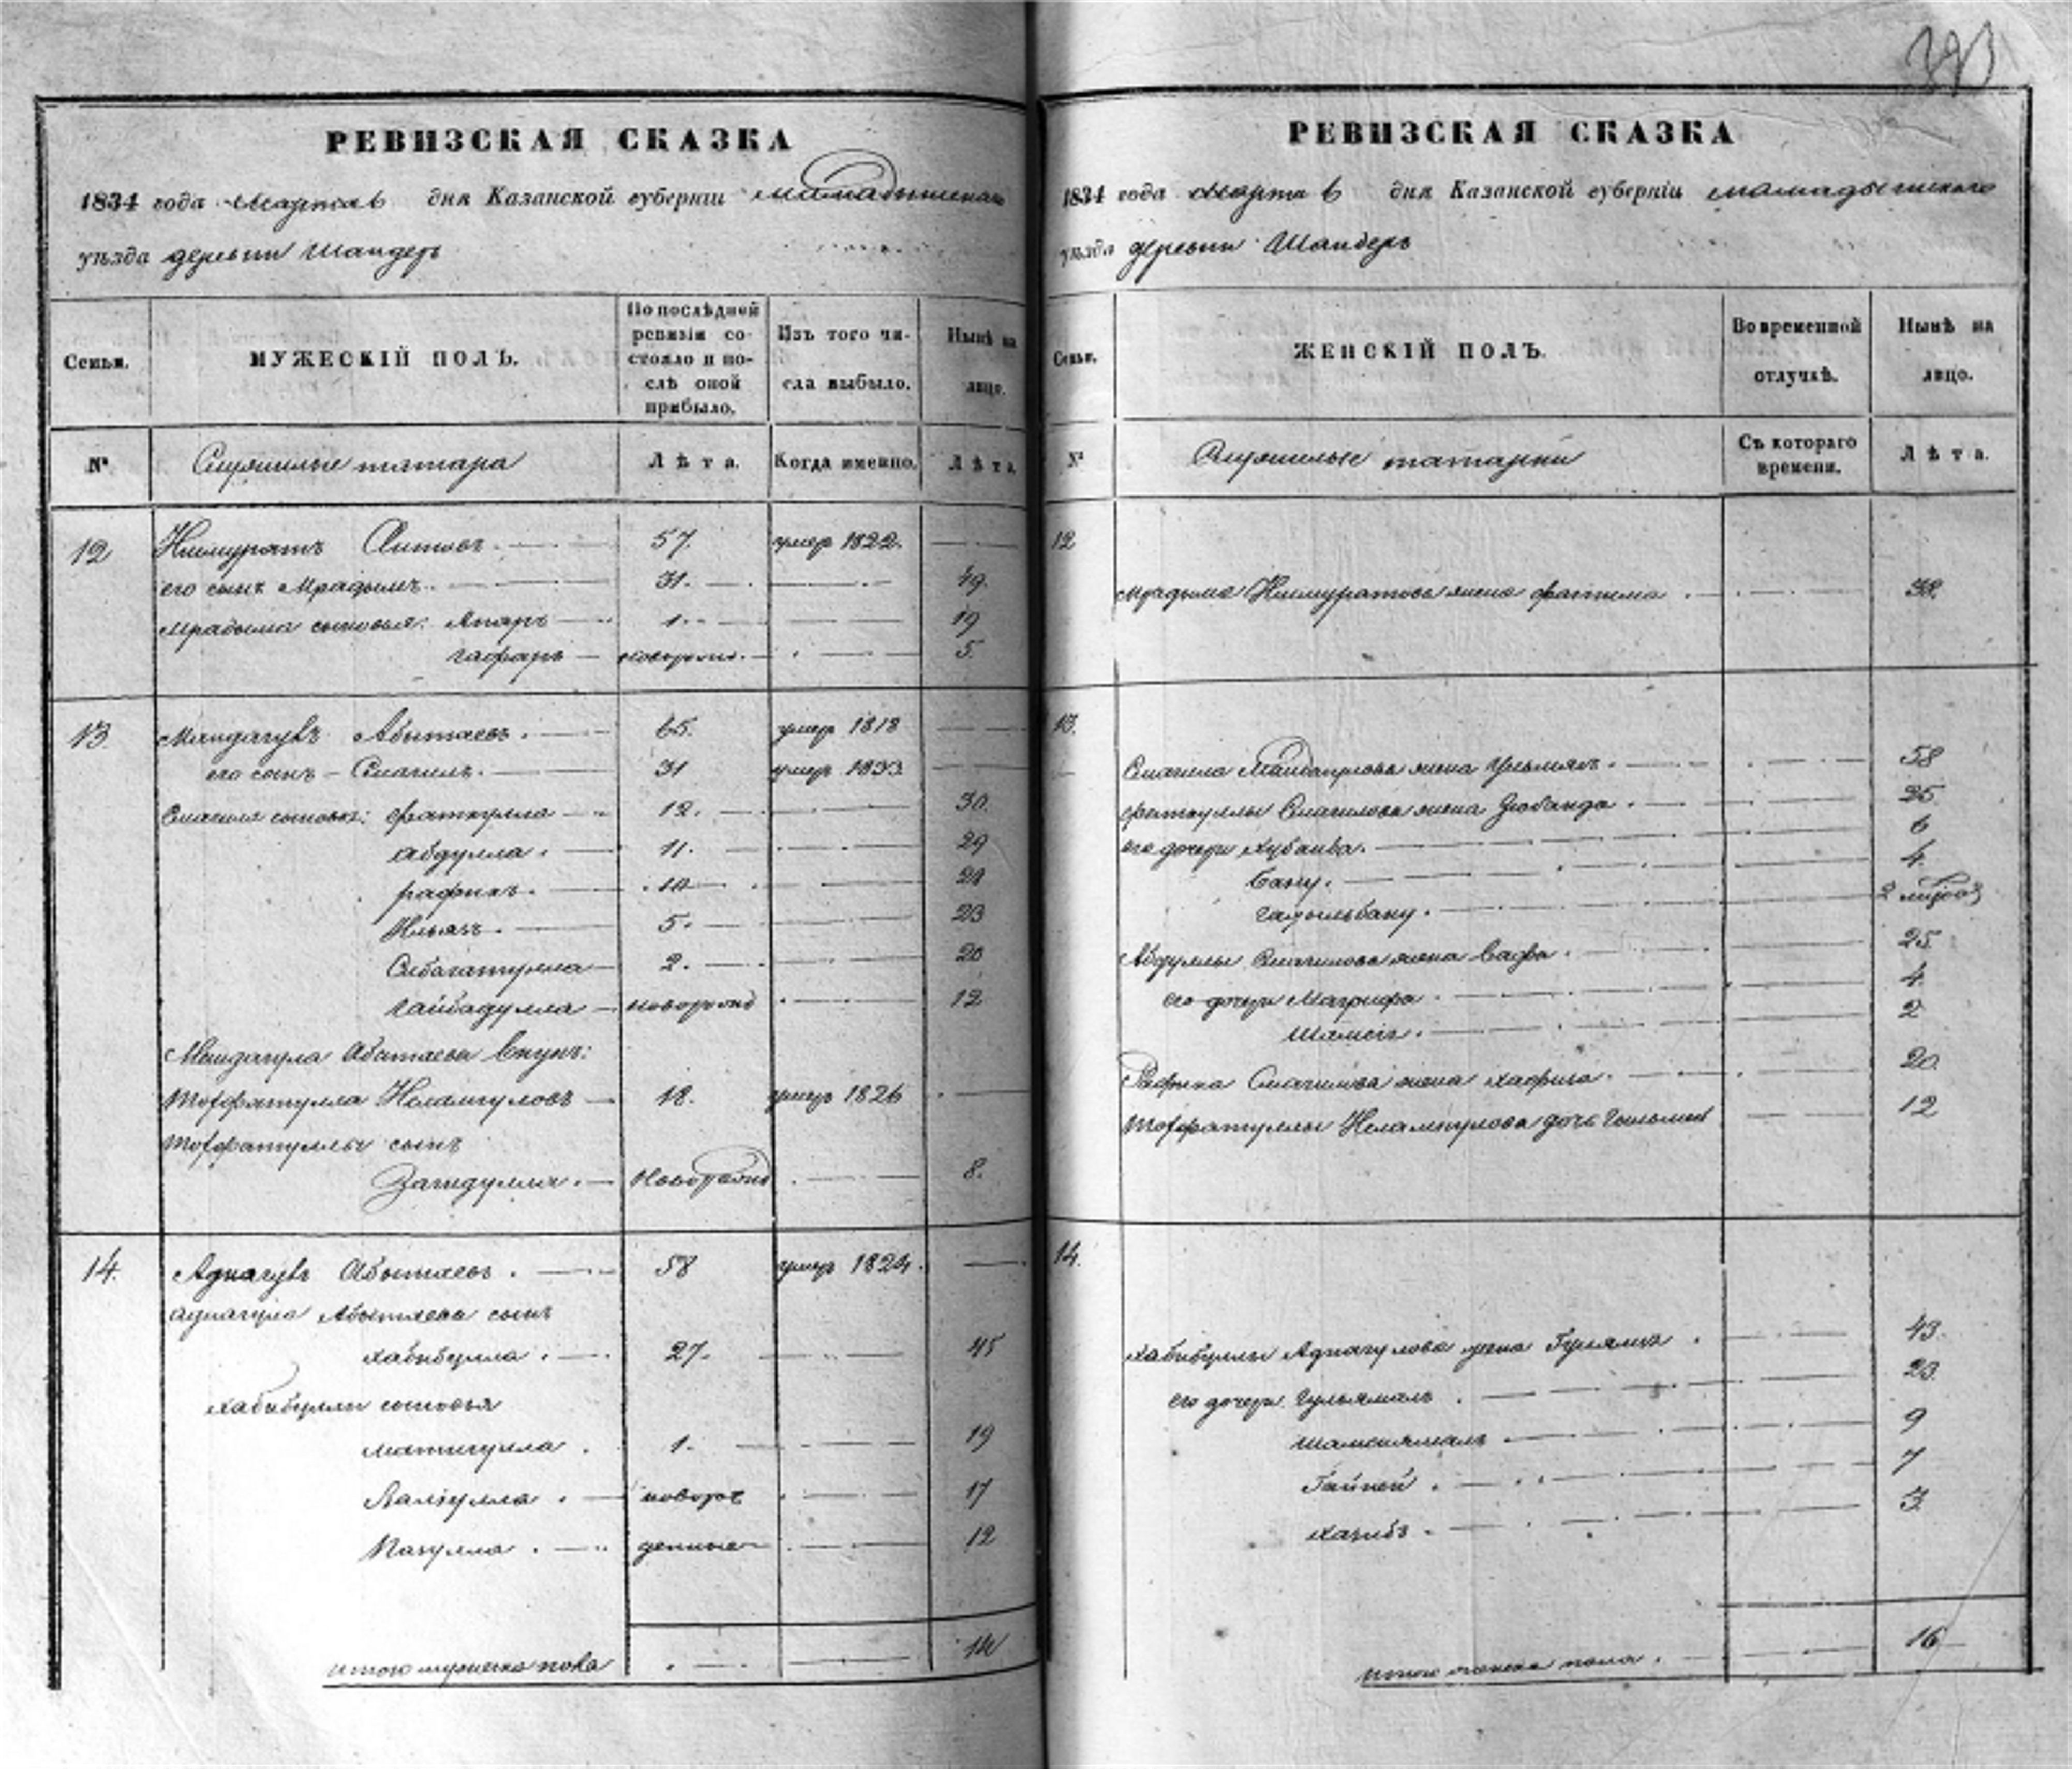 393
РЕВИЗСКАЯ СКАЗКА
1834 года Марта 6 дня Казанской губернии мамадышскаго
уѣзда деревни Шандеръ
Семьи.
МУЖЕСКІЙ ПОЛЪ.
По послѣдней ревизіи состояло и послѣ оной прибыло.
Изъ того числа выбыло.
Нынѣ на лицо.
№
Служилые татара
Лѣта.
Когда именно.
Лѣта.
12 57. умер 1822.
его сынъ Мрадымъ 31. 49.
Мрадыма сыновья: Апаръ 1. 19
гафаръ новорожд. 5.
13 Мандагулъ Абытаевъ 65. умер 1818
его сынъ Смагилъ 31 умер 1833
Смагила сыновья: фаткулла 12. 30.
абдулла 11. 29
рафикъ 10 28
Ильязъ 5. 23
Сибагатулла 2. 20
гайбадулла новорожд 12
Мандагула Абытаева внукъ:
18. умер 1826
сынъ
Загидулла Новорожд 8.
14. Аднагулъ Абытаевъ 58 умер 1824
аднагула Абытаева сынъ
хабибулла 27. 45
хабибуллы сыновья
матигулла 1. 19
Валіулла новорож 17
денные 12
итого мужеска пола 14
РЕВИЗСКАЯ СКАЗКА
1834 года Марта 6 дня Казанской губерніи мамадышскаго
уѣзда деревни Шандеръ
Семьи.
ЖЕНСКІЙ ПОЛЪ.
Во временной отлучкѣ.
Нынѣ на лицо.
№
Служилые татарки
Съ котораго времени.
Лѣта.
12
мрадыма жена фатима 38.
13.
Смагила Мандагулова жена 58
фаткуллы Смагилова жена Зюбаида 25
его дочери Хубаиба 6
бану 4.
2
Абдуллы Смагилова жена Вафа 25
его дочери Магруфа 4.
Шамси 2
Рафика Смагилова жена хафиза 20
дочь 12
14.
хабибуллы Аднагулова жена 43.
его дочери гульямалъ 23
шамсиямалъ 9
Гайней 7
3
итого женска пола 16